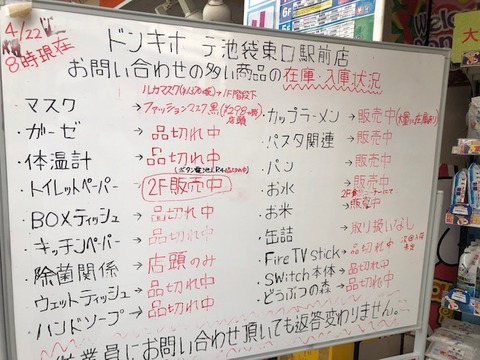 4/22
8時現在
ドンキホーテ池袋東口駅前店
お問い合わせの多い商品の在庫・入庫状況
・マスク → ファッションマスク黒(¥298+税) 店頭
・ガーゼ → 品切れ中
・体温計 → 品切れ中
・トイレットペーパー → 2F販売中
・BOXティッシュ → 品切れ中
・キッチンペーパー → 品切れ中
・除菌関係 → 店頭のみ
・ウェットティッシュ → 品切れ中
・ハンドソープ → 品切れ中
・カップラーメン → 販売中
・パスタ関連 → 販売中
・パン → 販売中
・お水 → 販売中
・お米 → 販売中
・缶詰 → 取り扱いなし
・Fire TV stick → 品切れ中
・SWitch本体 → 品切れ中
・どうぶつの森 → 品切れ中
従業員にお問い合わせ頂いても返答変わりません。